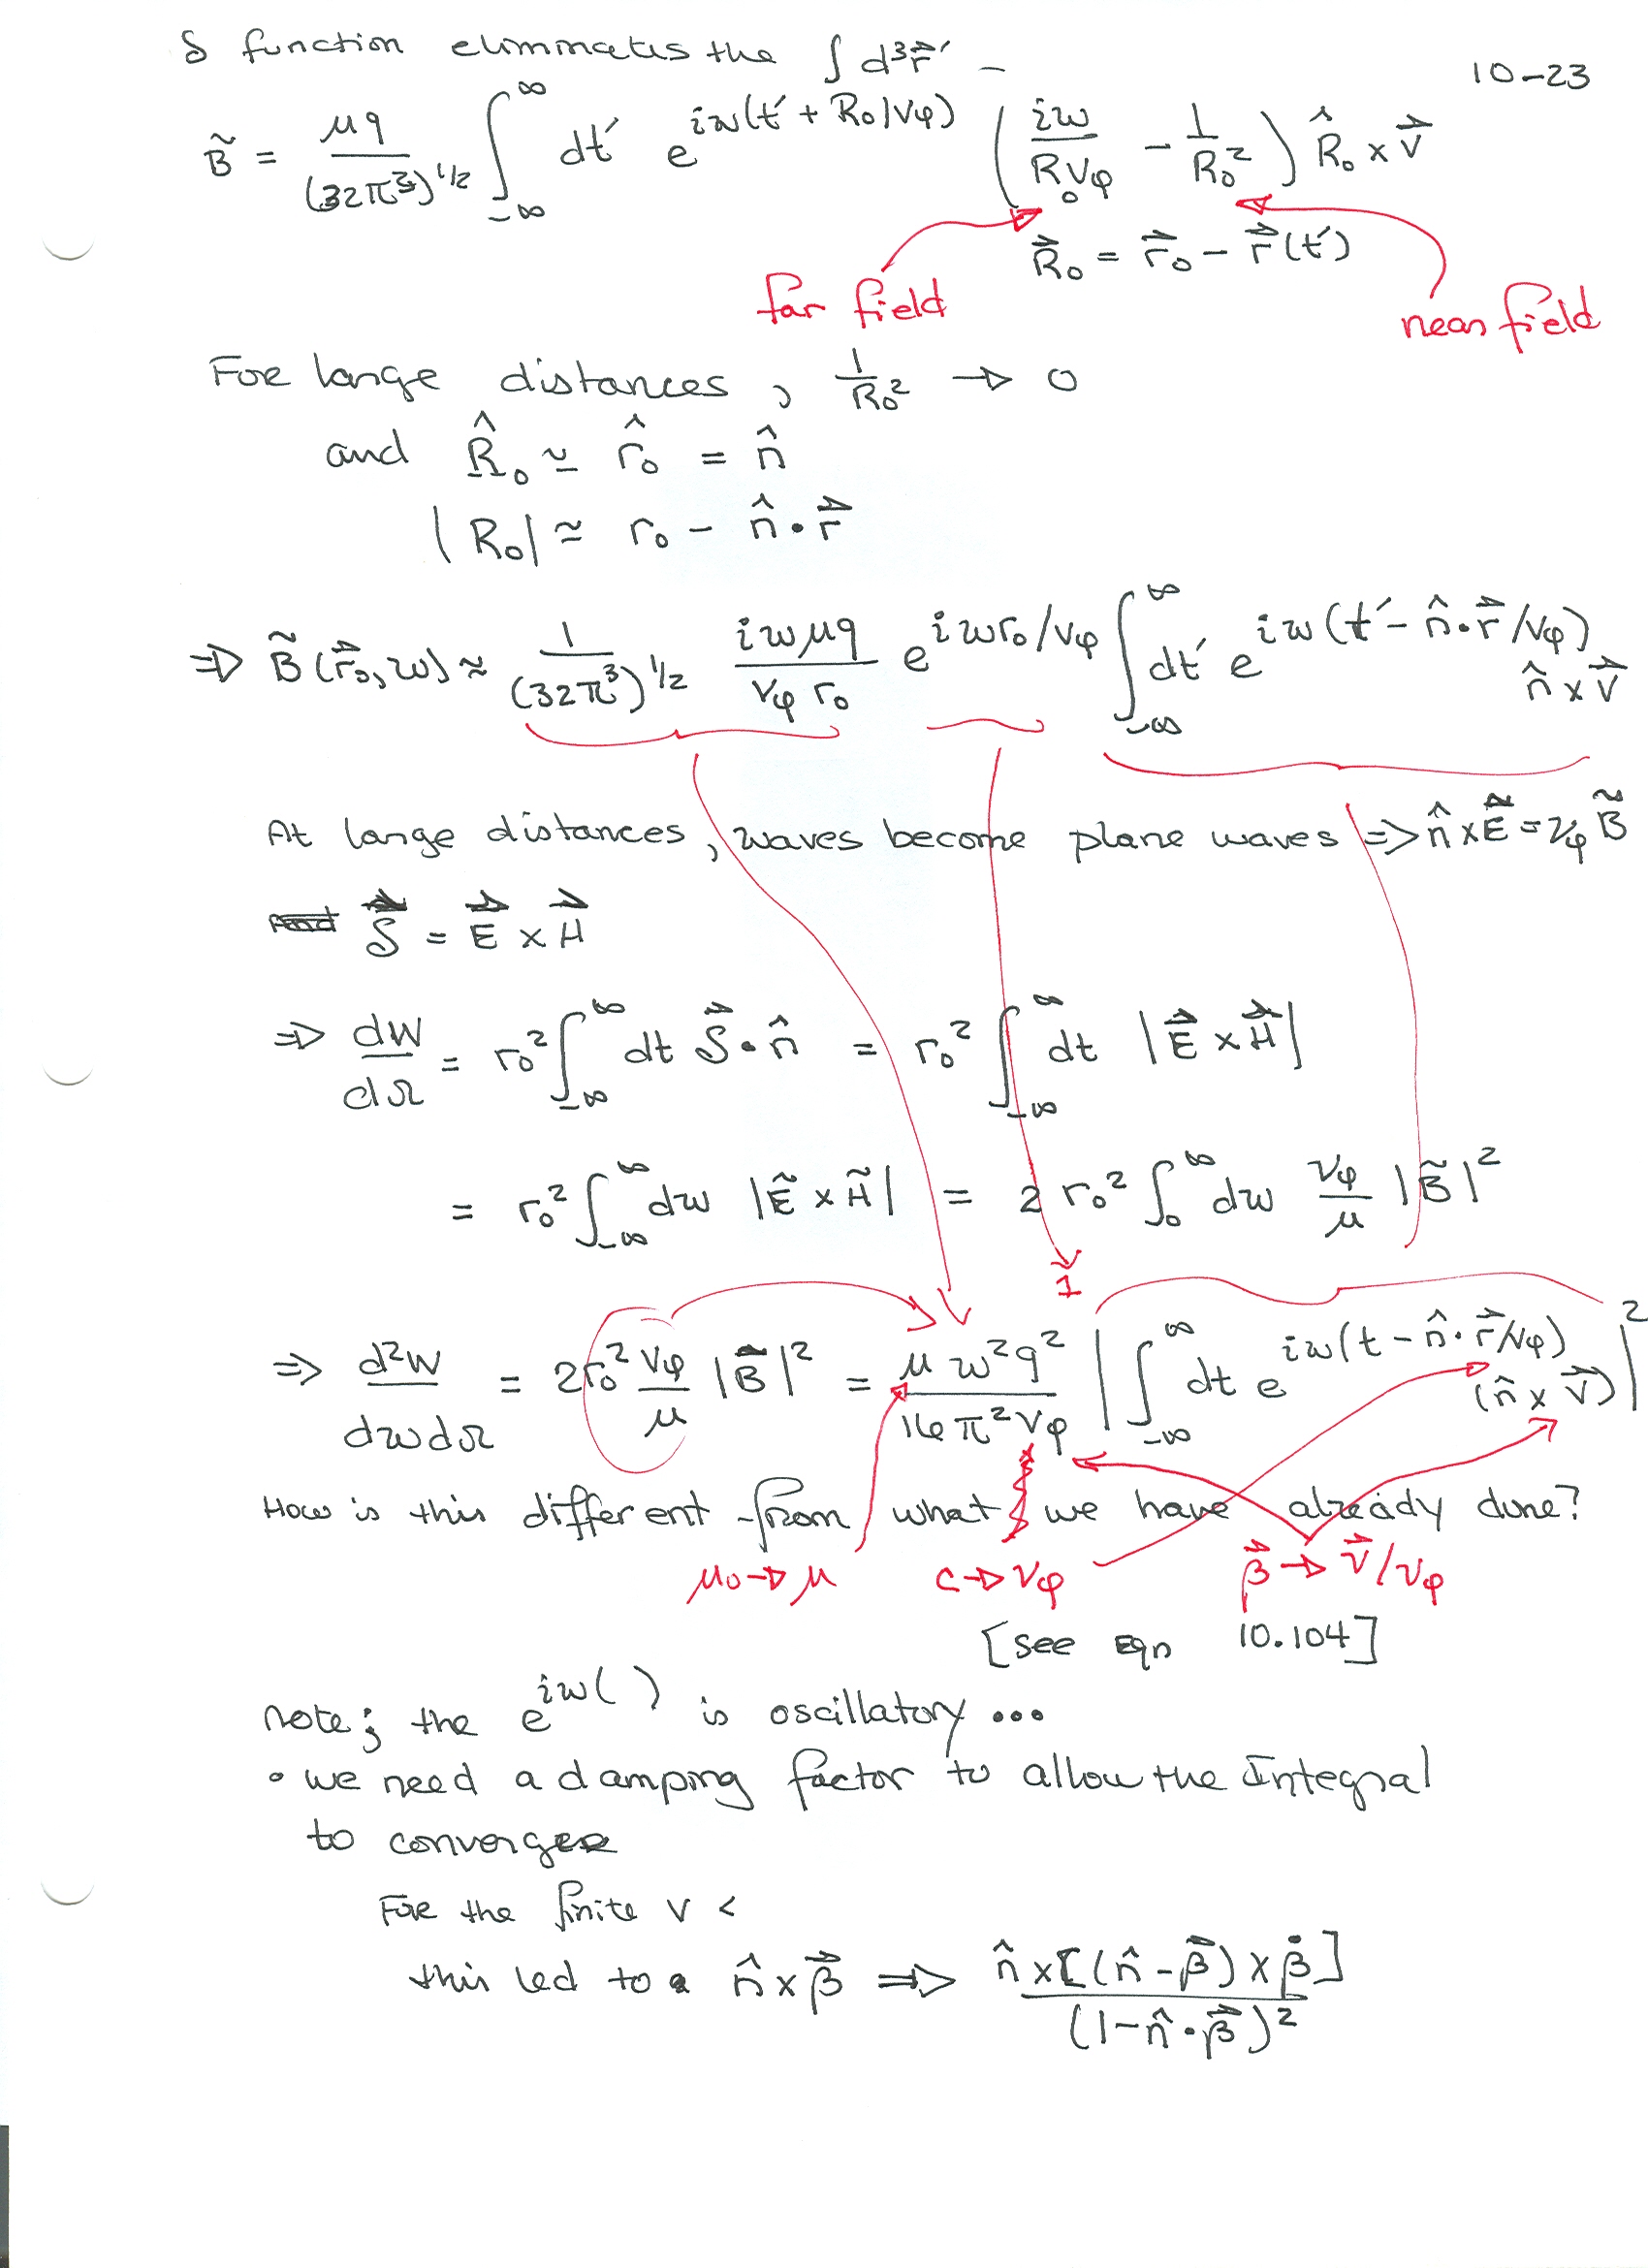 δ function eliminates the ∫ d³r⃗′ –
10-23
B̃ = μq/(32π³)^{1/2} ∫_{-∞}^{∞} dt′ e^{iω(t′ + R₀/v_φ)} (iω/(R₀v_φ) – 1/R₀²) R̂₀ × v⃗
R⃗₀ = r⃗₀ – r⃗(t′)
far field
near field
For large distances, 1/R₀² → 0
and R̂₀ ≃ r̂₀ = n̂
|R₀| ≈ r₀ – n̂·r⃗
⇒ B̃(r⃗₀,ω) ≈ 1/(32π³)^{1/2} iωμq/(v_φ r₀) e^{iωr₀/v_φ} ∫_{-∞}^{∞} dt′ e^{iω(t′ – n̂·r⃗/v_φ)} n̂ × v⃗
At large distances, waves become plane waves ⇒ n̂ × Ẽ = v_φ B̃
S⃗ = E⃗ × H⃗
⇒ dW/dΩ = r₀² ∫_{-∞}^{∞} dt S⃗·n̂ = r₀² ∫_{-∞}^{∞} dt |E⃗ × H⃗|
= r₀² ∫_{-∞}^{∞} dω |Ẽ × H̃| = 2 r₀² ∫₀^{∞} dω v_φ/μ |B̃|²
1
⇒ d²W/dωdΩ = 2r₀² v_φ/μ |B̃|² = μω²q²/(16π²v_φ) |∫_{-∞}^{∞} dt e^{iω(t – n̂·r⃗/v_φ)} (n̂ × v⃗)|²
How is this different from what we have already done?
μ₀ → μ c → v_φ β⃗ → v⃗/v_φ
[see Eqn 10.104]
note; the e^{iω( )} is oscillatory ...
• we need a damping factor to allow the Integral
to converge
For the finite v <
this led to n̂ × β⃗ ⇒ n̂ × [(n̂ – β⃗) × β̇]/(1 – n̂·β⃗)²